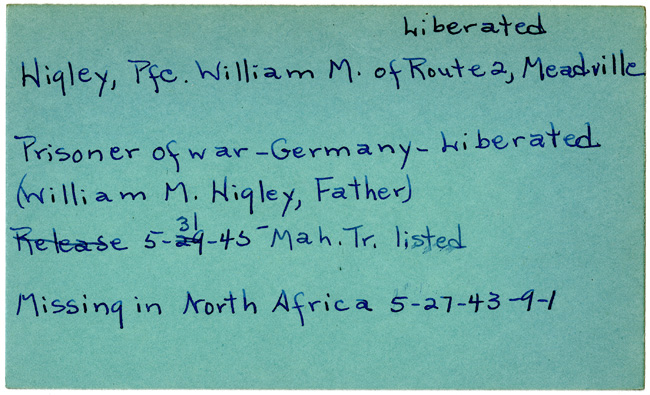 Liberated
Higley, Pfc. William M. of Route 2, Meadville
Prisoner of war - Germany - Liberated
(William M. Higley, Father)
Release 5-29-45 - Mah. Tr. listed
31
Missing in North Africa 5-27-43-9-1